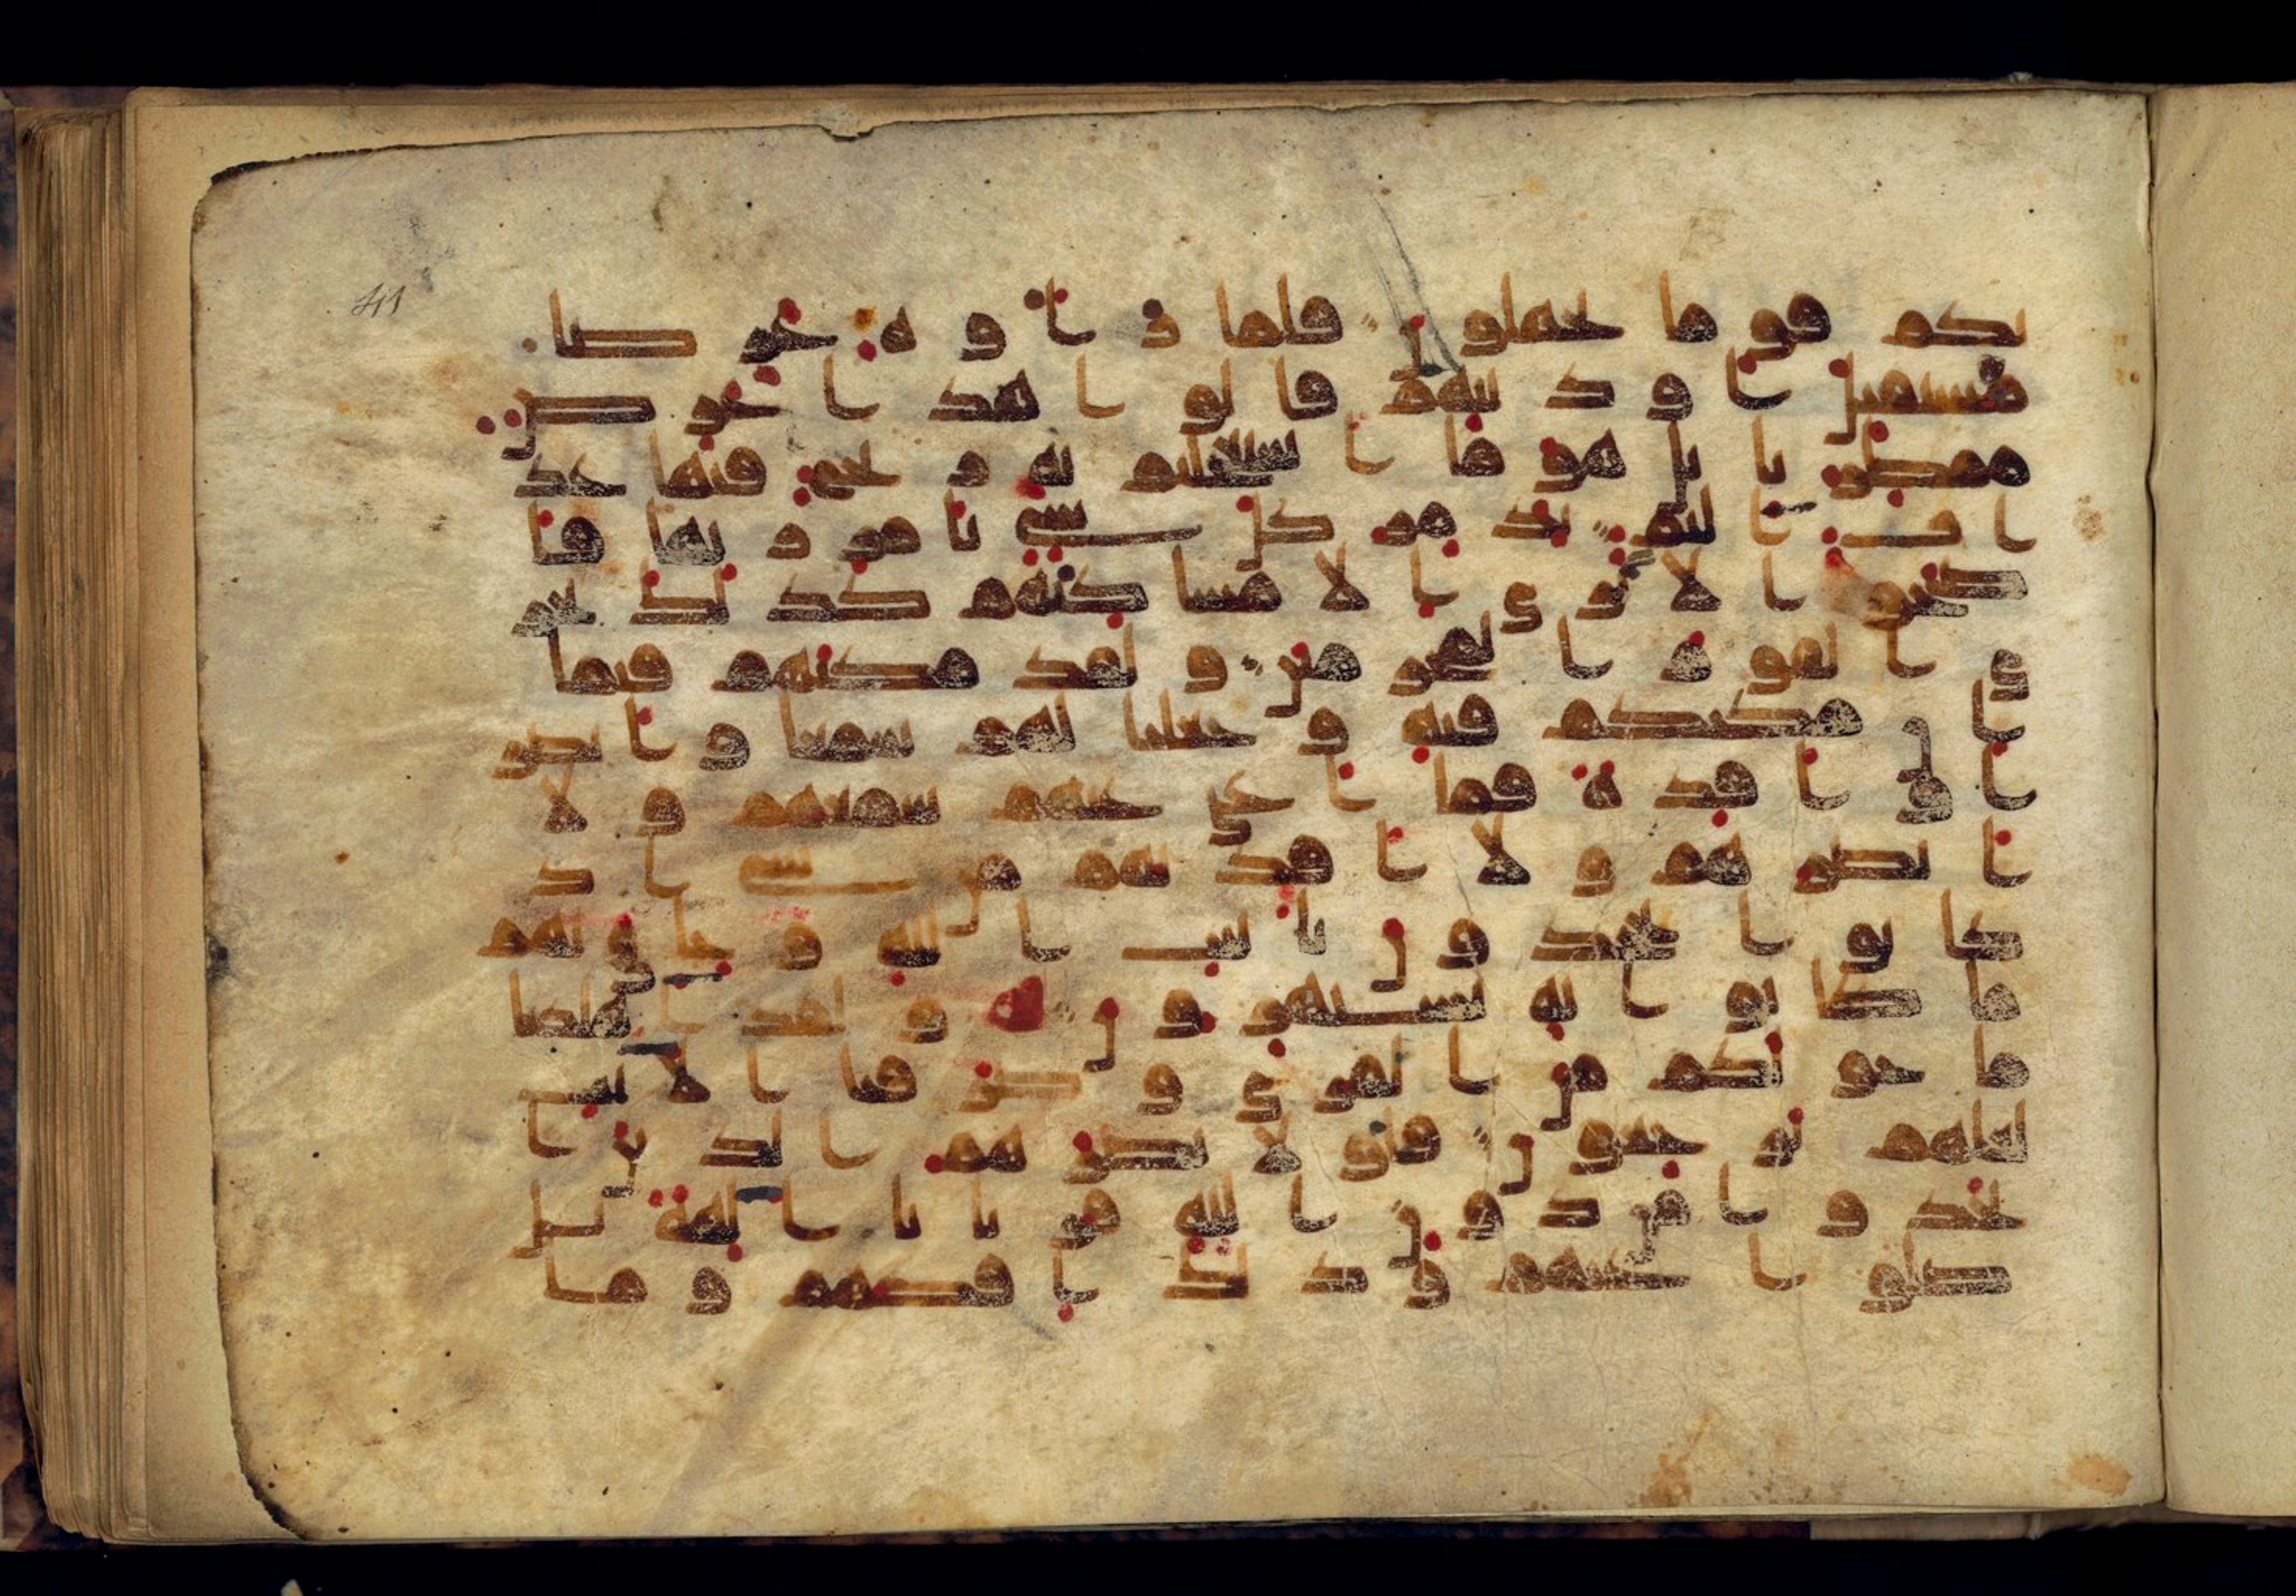 41
يكم قوما تجهلون فلما راوه عرضا
مستقبل اوديتهم قالوا هذا عرض
ممطرنا بل هو ما استعجلتم به ريح فيها عذ
اب اليم تدمر كل شي بامر ربها فا
صبحوا لا يرى الا مسكنهم كذلك نجز
ي القوم المجرمين ولقد مكنهم فيما
ان مكنكم فيه وجعلنا لهم سمعا وابصر
ا وافده فما اغنى عنهم سمعهم ولا
ابصرهم ولا افدتهم من شي اذ
كانوا يجحدون بايت الله وحاق بهم
ما كانوا به يستهزون ولقد اهلكنا
ما حولكم من القرى وصرفنا الايت
لعلهم يرجعون فلولا نصرهم الذين ا
تخذوا من دون الله قربانا الهة بل
ضلوا عنهم وذلك افكهم وما